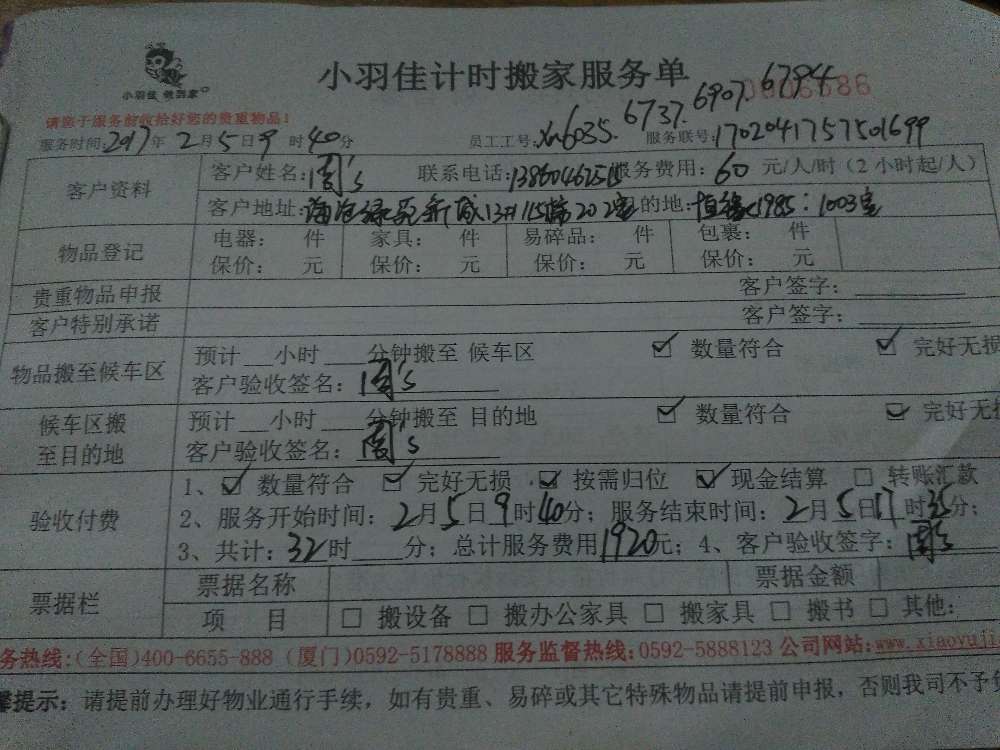 小羽佳计时搬家服务单
小羽佳 做到家
请您于服务前收拾好您的贵重物品!
服务时间:2017年 2月5日9时40分 员工工号:xm6035. 6737. 6907. 6794 服务联号:1702041757501699
客户资料 客户姓名:周's 联系电话: 服务费用:60 元/人/时(2小时起/人)
客户地址:海沧绿苑新城13#115梯202室 目的地: 1985:1003室
物品登记 电器: 件 家具: 件 易碎品: 件 包裹: 件
保价: 元 保价: 元 保价: 元 保价: 元
贵重物品申报 客户签字:
客户特别承诺 客户签字:
物品搬至候车区 预计__小时___分钟搬至 候车区 ☑ 数量符合 ☑ 完好无损
客户验收签名:周's
候车区搬至目的地 预计__小时___分钟搬至 目的地 ☑ 数量符合 ☑ 完好无损
客户验收签名:周's
验收付费 1、☑ 数量符合 ☑ 完好无损 ☑ 按需归位 ☑ 现金结算 □ 转账汇款
2、服务开始时间:2月5日9时40分;服务结束时间:2月5日17时35分;
3、共计:32时____分;总计服务费用1920元;4、客户验收签字:周's
票据栏 票据名称 票据金额
项 目 □ 搬设备 □ 搬办公家具 □ 搬家具 □ 搬书 □ 其他:
务热线:(全国)400-6655-888 (厦门)0592-5178888 服务监督热线:0592-5888123 公司网站:www.xiaoyuji
馨提示:请提前办理好物业通行手续,如有贵重、易碎或其它特殊物品请提前申报,否则我司不予